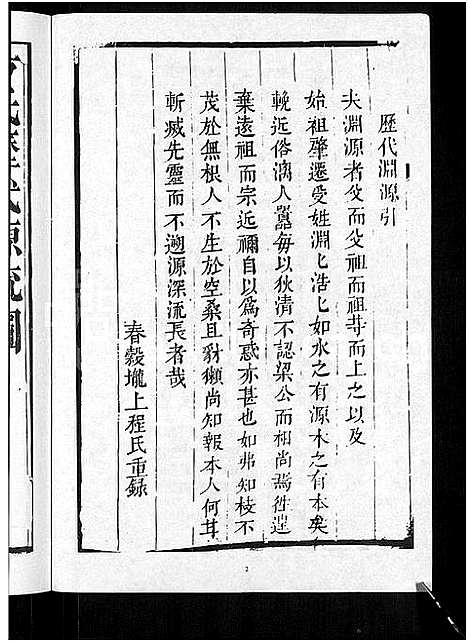 歷代淵源引
夫淵源者父而父祖而祖尋而上之以及
始祖肇遷受姓淵匕浩匕如水之有源木之有本矣
輓近俗漓人囂每以狄清不認梁公而相尚焉徃迬
棄遠祖而宗近禰自以為奇惑亦甚也如弗知枝不
茂於無根人不生於空桑且豺獺尚知報本人何耳
斬臧先靈而不遡源深流長者哉
春穀壠上程氏重録
2